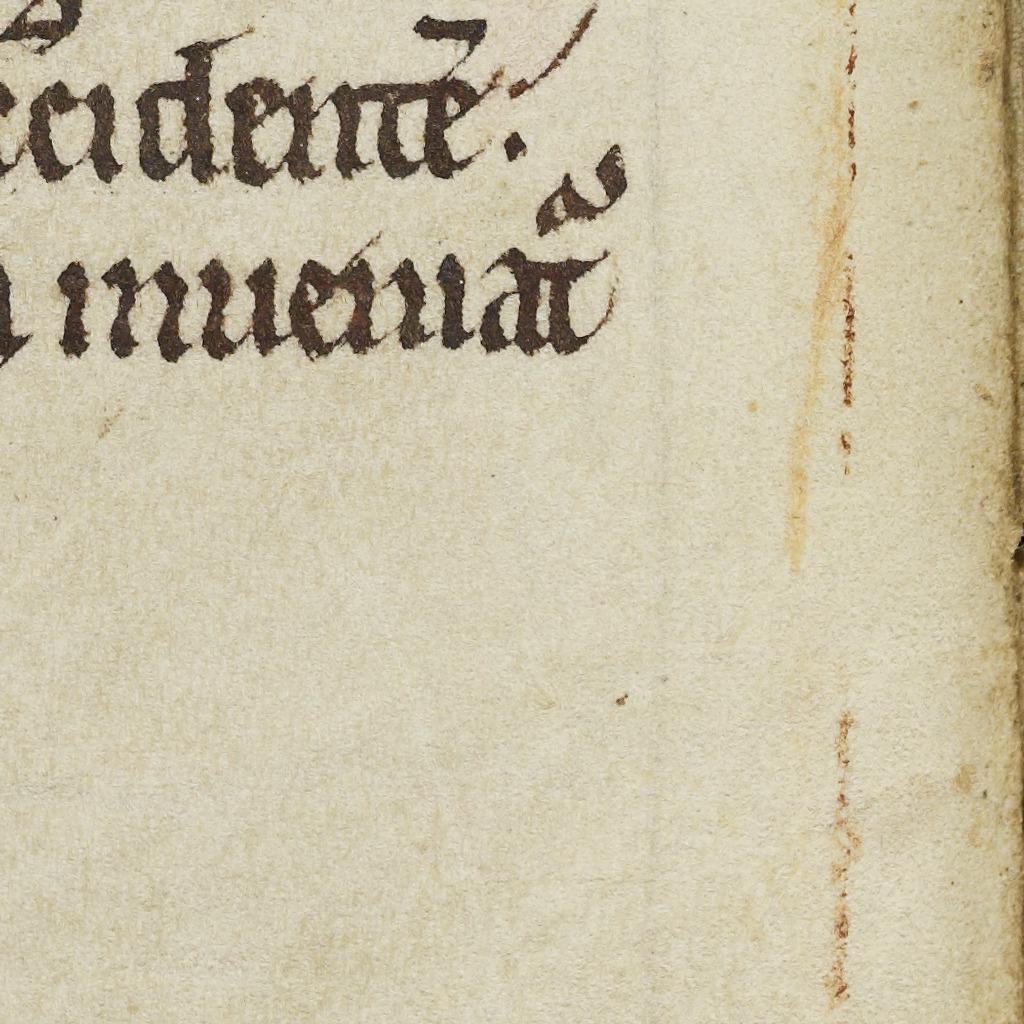 ccidentē.
inueniat᷑